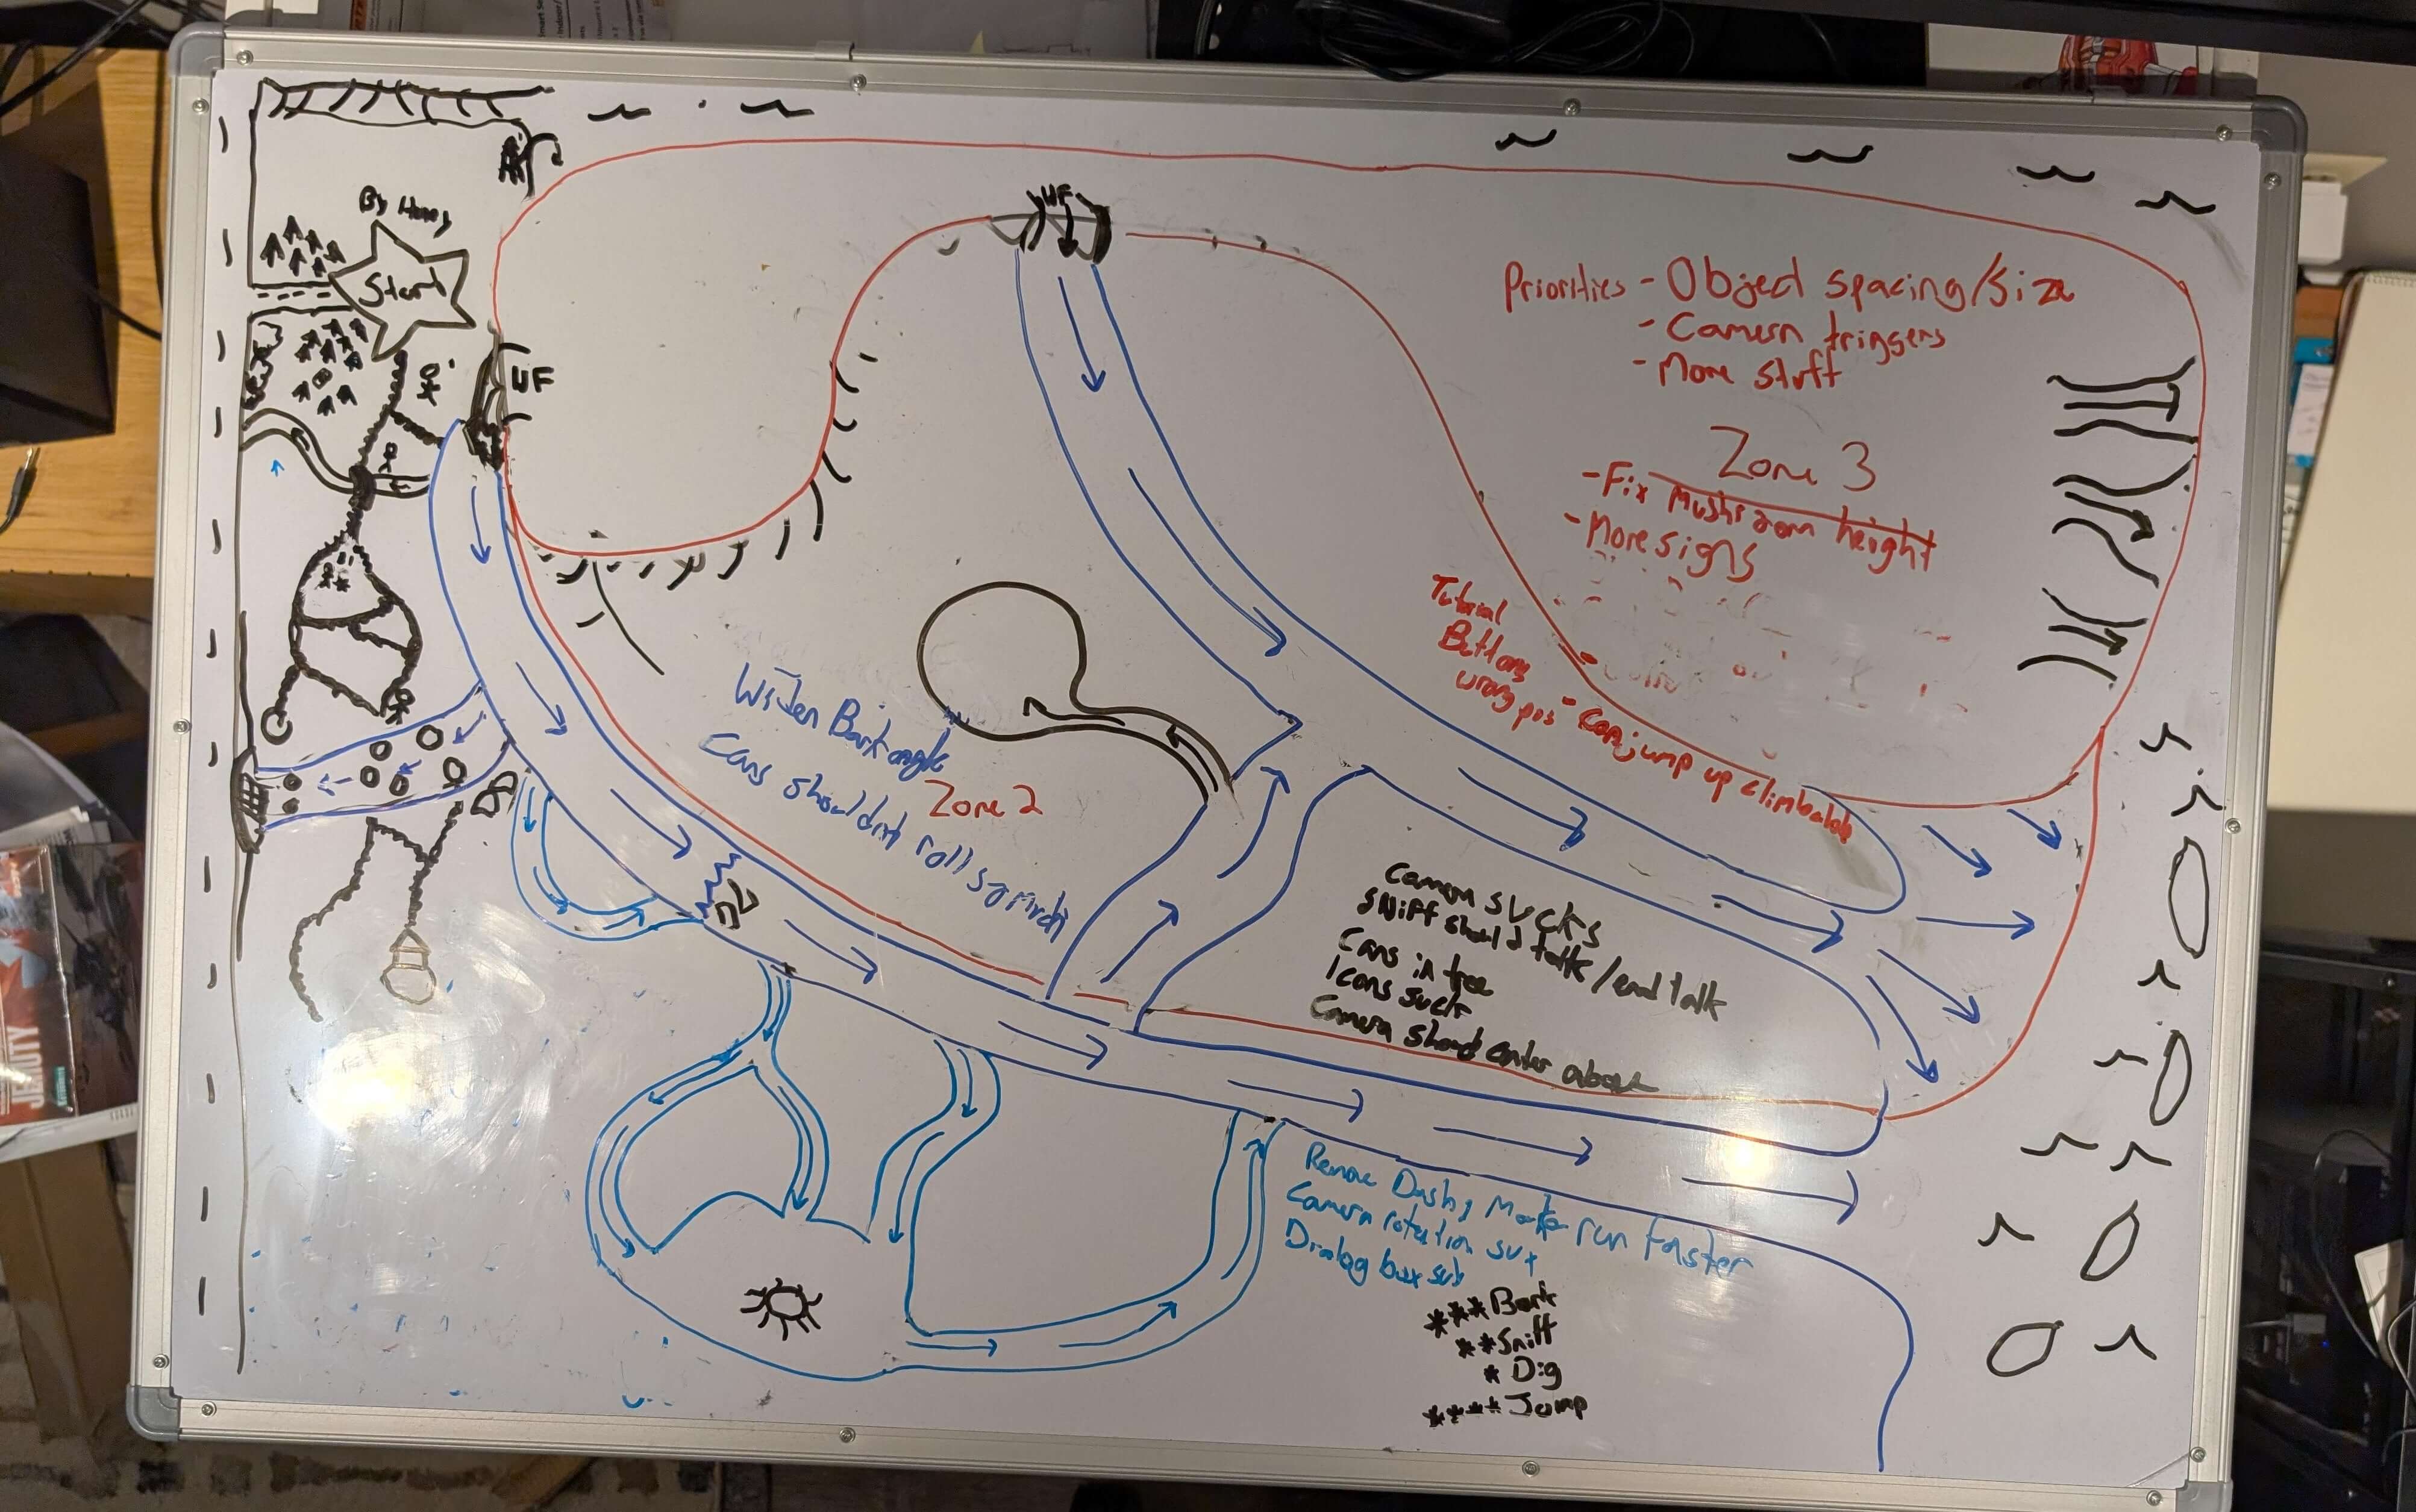 By Henry
Start
WF
WF
Priorities - Object spacing/size
- Camera triggers
- More stuff
Zone 3
- Fix Mushroom height
- More signs
Tutorial
Buttons
wrong pos - Can jump up climbable
Widen Bark angle
Cans shouldnt roll so much
Zone 2
Camera sucks
Sniff should talk/end talk
Cans in tree
Icons suck
Camera should center above
Remove Dash, Make run faster
Camera rotation sux
Dialog box sux
***Bark
**Sniff
*Dig
****Jump